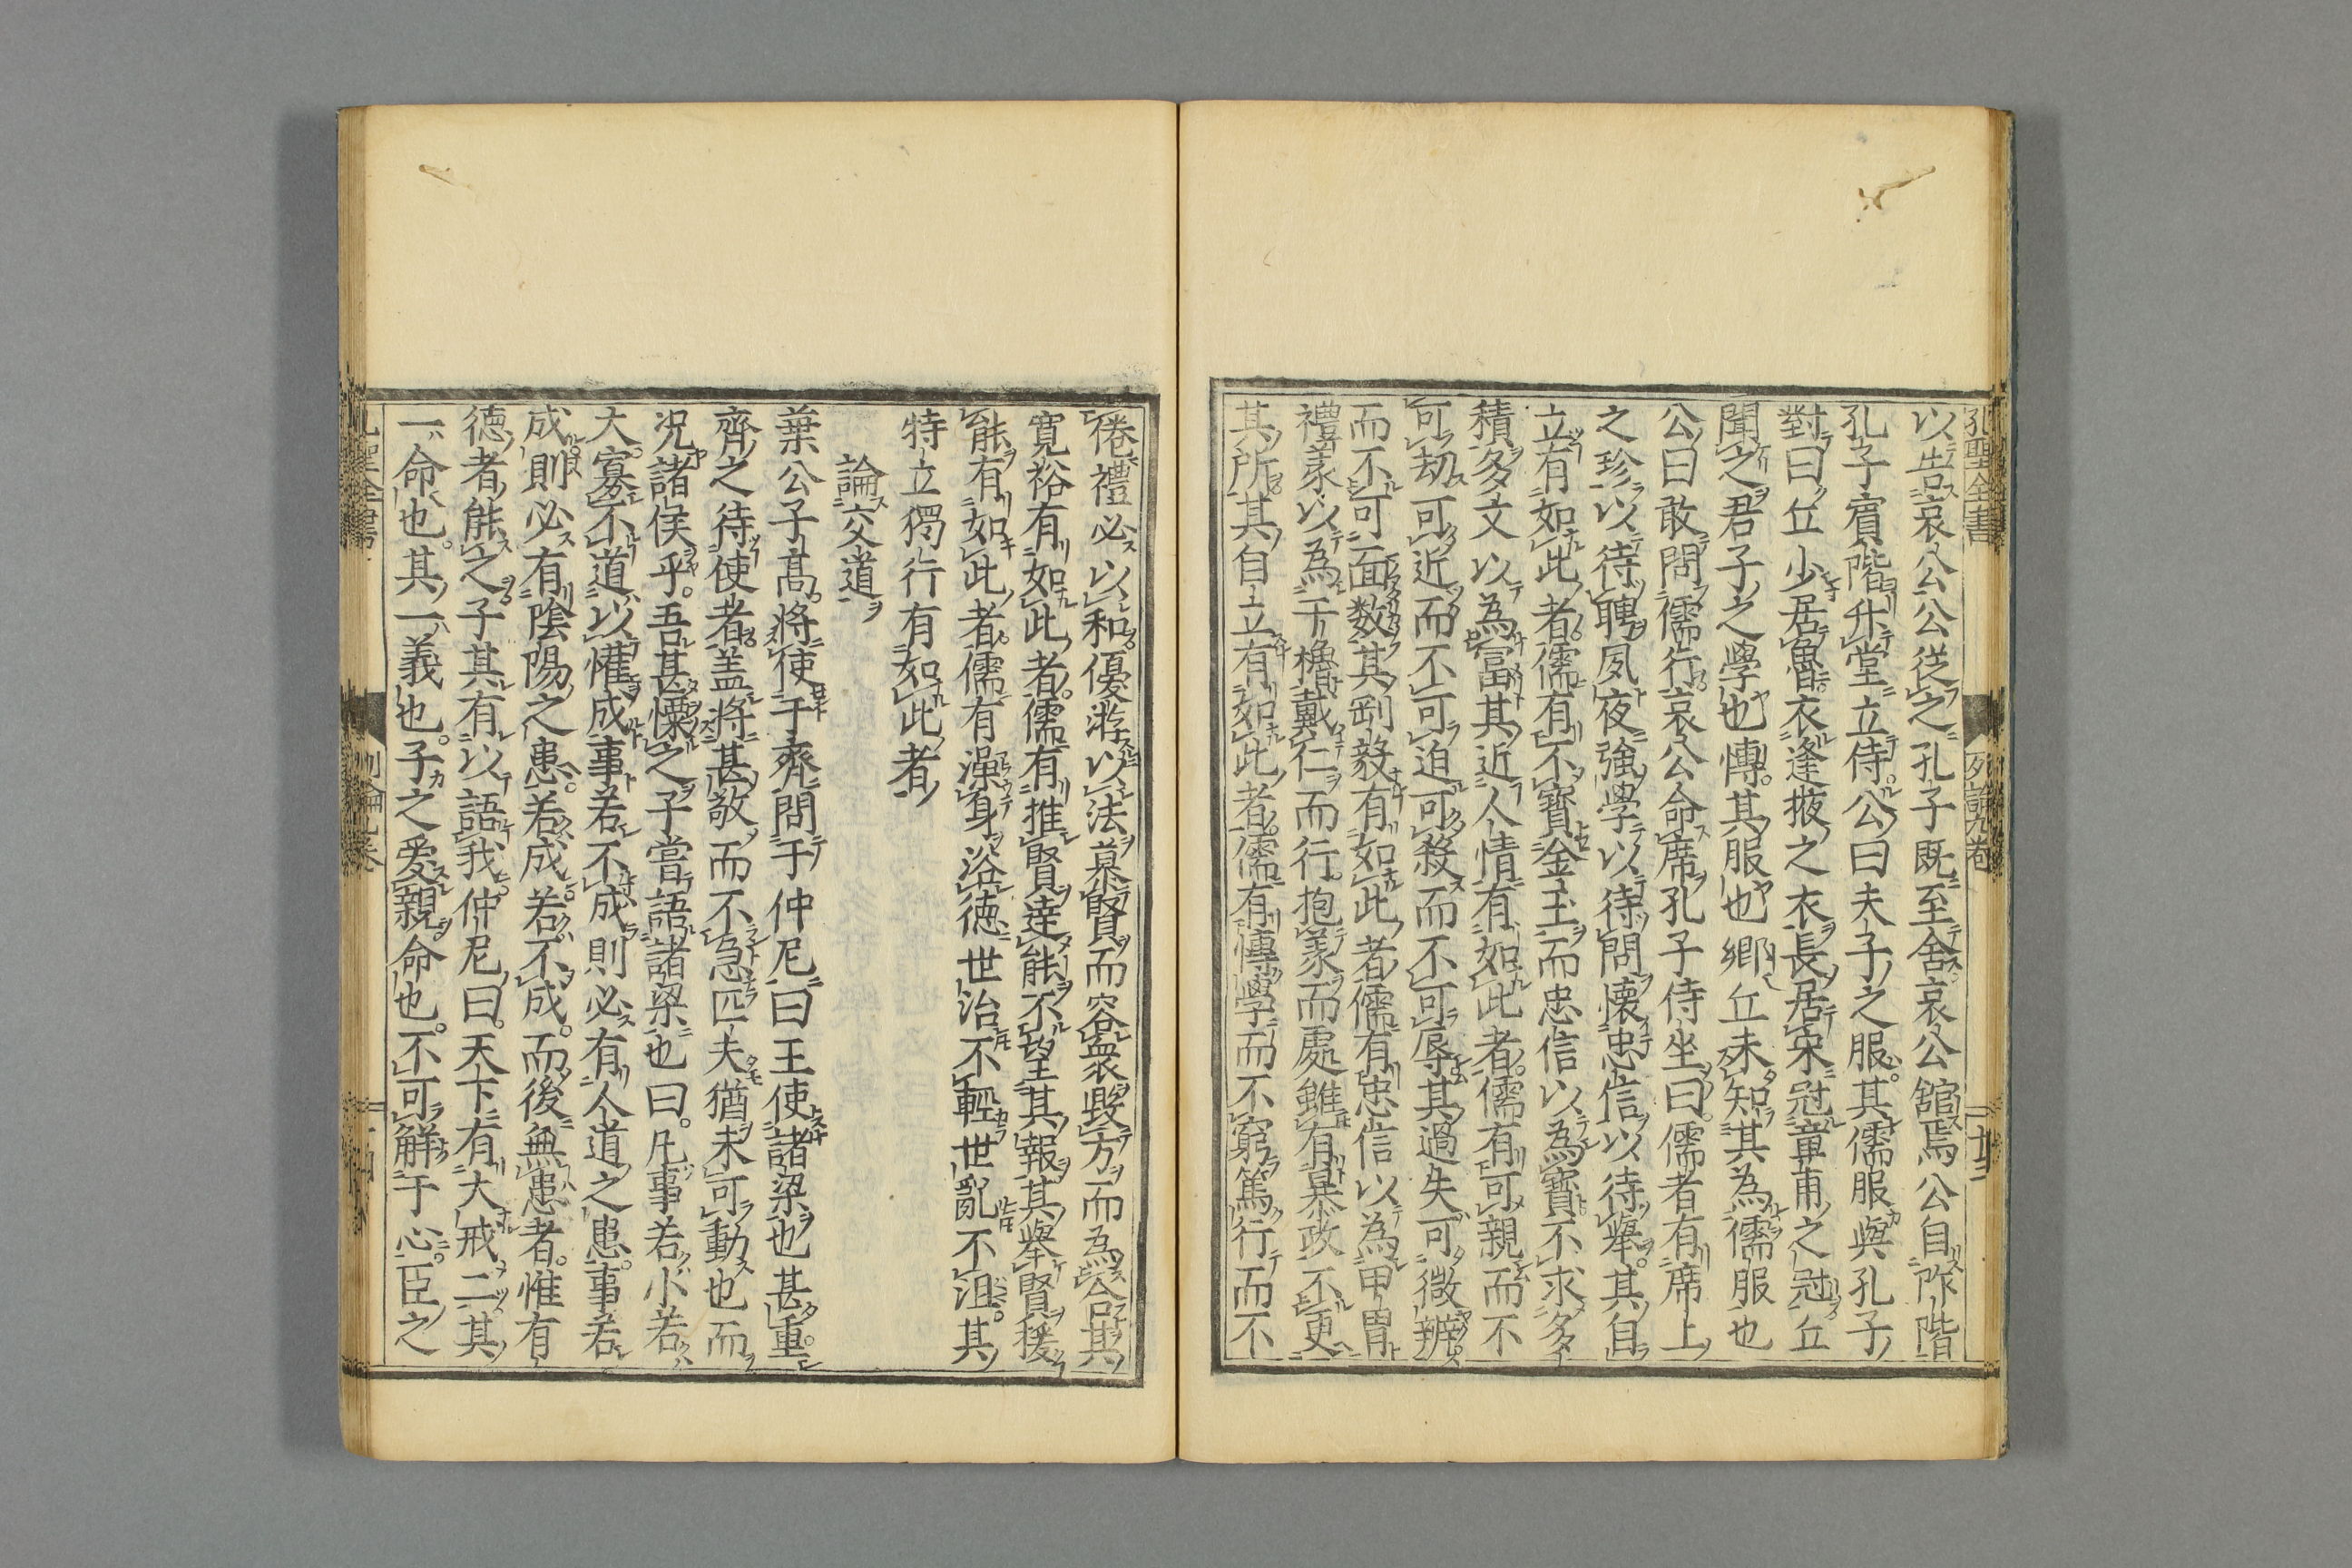 孔聖全書
以告哀公公從之孔子既至舍哀公館焉公自阼階
孔子賓階升堂立侍公曰夫子之服其儒服與孔子
對曰丘少居魯衣逢掖之衣長居宋冠章甫之冠丘
聞之君子之學也博其服也鄉丘未知其為儒服也
公曰敢問儒行哀公命席孔子侍坐曰儒者有席上
之珍以待聘夙夜強學以待問懷忠信以待舉其自
立有如此者儒有不寶金玉而忠信以為寶不求多
積多文以為富其近人情有如此者儒有可親而不
可劫可近而不可迫可殺而不可辱其過失可微辨
而不可面数其剛毅有如此者儒有忠信以為甲冑
禮義以為干櫓戴仁而行抱義而處雖有暴政不更
其所其自立有如此者儒有博學而不窮篤行而不
倦禮必以和優游以法慕賢而容衆毀方而為合其
寬裕有如此者儒有推賢達能不望其報其舉賢援
能有如此者儒有澡身浴徳世治不輕世亂不沮其
特立獨行有如此者
論交道
葉公子髙將使于齊問于仲尼曰王使諸梁也甚重
齊之待使者盖將甚敬而不急匹夫猶未可動也而
况諸侯乎吾甚慄之子嘗語諸梁也曰凡事若小若
大寡不道以懽成事若不成則必有人道之患事若
成則必有陰陽之患若成若不成而後無患者惟有
徳者能之子其有以語我仲尼曰天下有大戒二其
一命也其一義也子之爱親命也不可解于心臣之